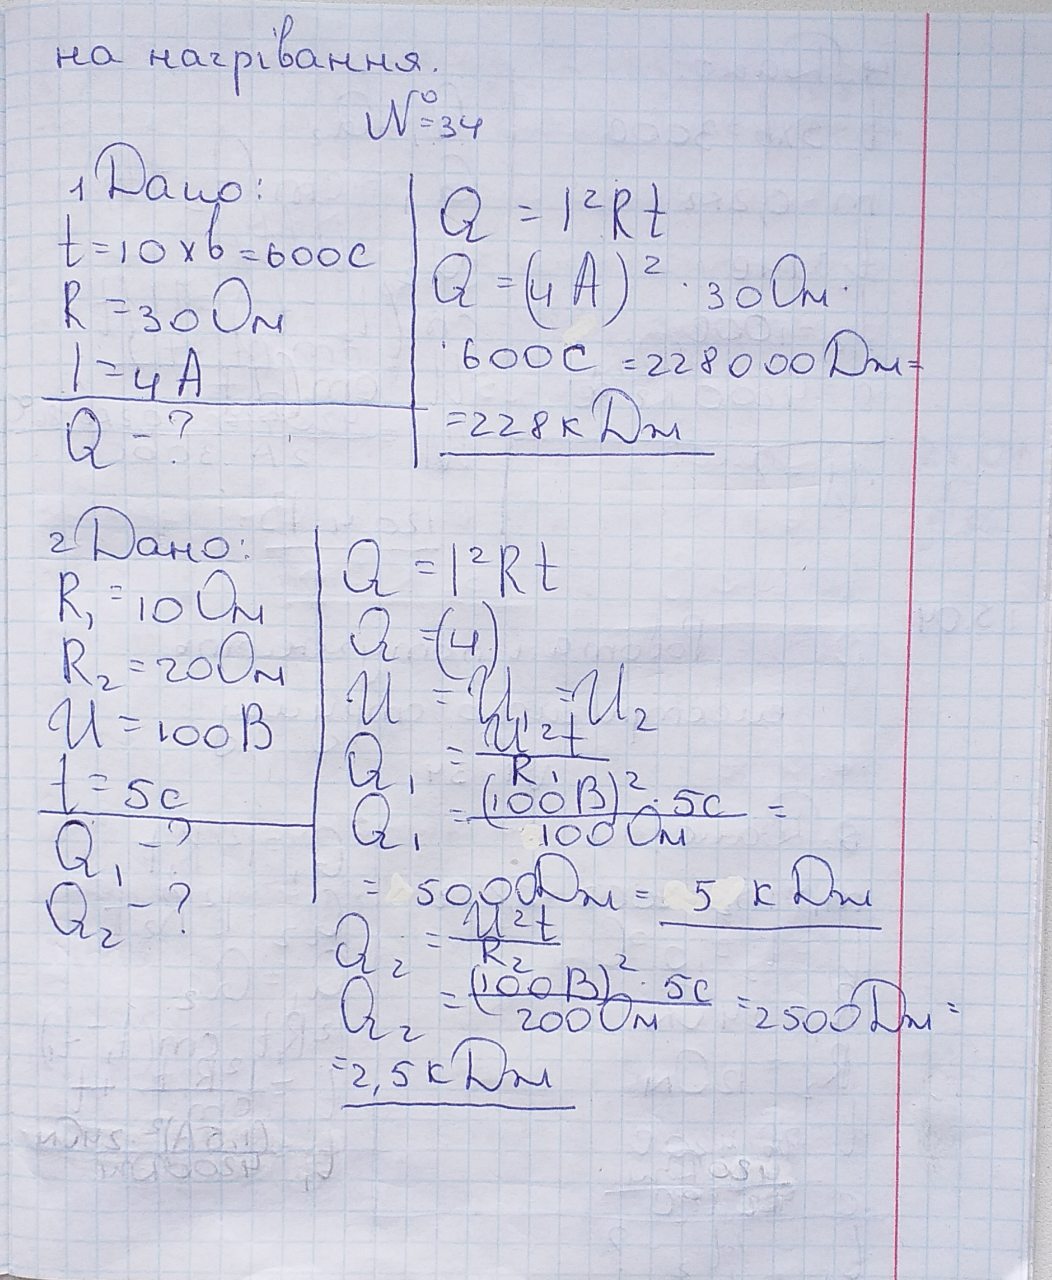 на нагрівання.
№34
1 Дано:
t = 10 хв = 600 с
R = 30 Ом
I = 4 А
Q - ?
Q = I²Rt
Q = (4 А)² · 30 Ом ·
· 600 с = 228000 Дж =
= 228 кДж
2 Дано:
R₁ = 10 Ом
R₂ = 20 Ом
U = 100 В
t = 5 с
Q₁ - ?
Q₂ - ?
Q = I²Rt
Q = (4)
U = U₁ = U₂
Q₁ = U²t / R₁
Q₁ = (100 В)² · 5 с / 10 Ом =
= 5000 Дж = 5 кДж
Q₂ = U²t / R₂
Q₂ = (100 В)² · 5 с / 20 Ом = 2500 Дж =
= 2,5 кДж